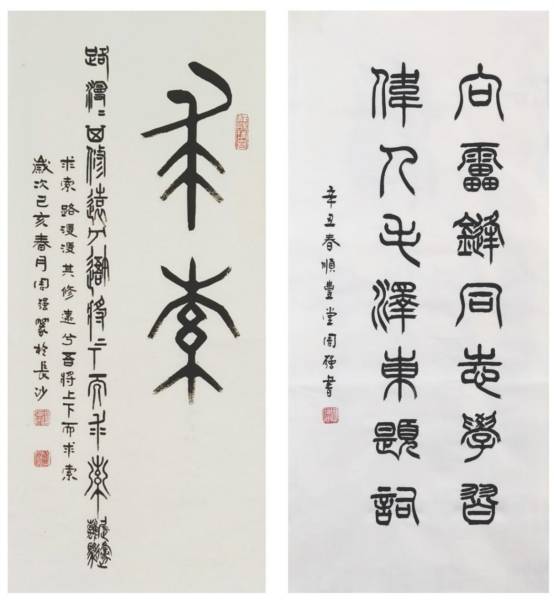 求索
路漫〻其修遠兮吾將上下而求索
求索 路漫漫其修遠兮吾將上下而求索
歲次己亥春月周强篆於長沙
向靁鋒同志學習
偉人毛澤東題詞
辛丑春順豐堂周强書